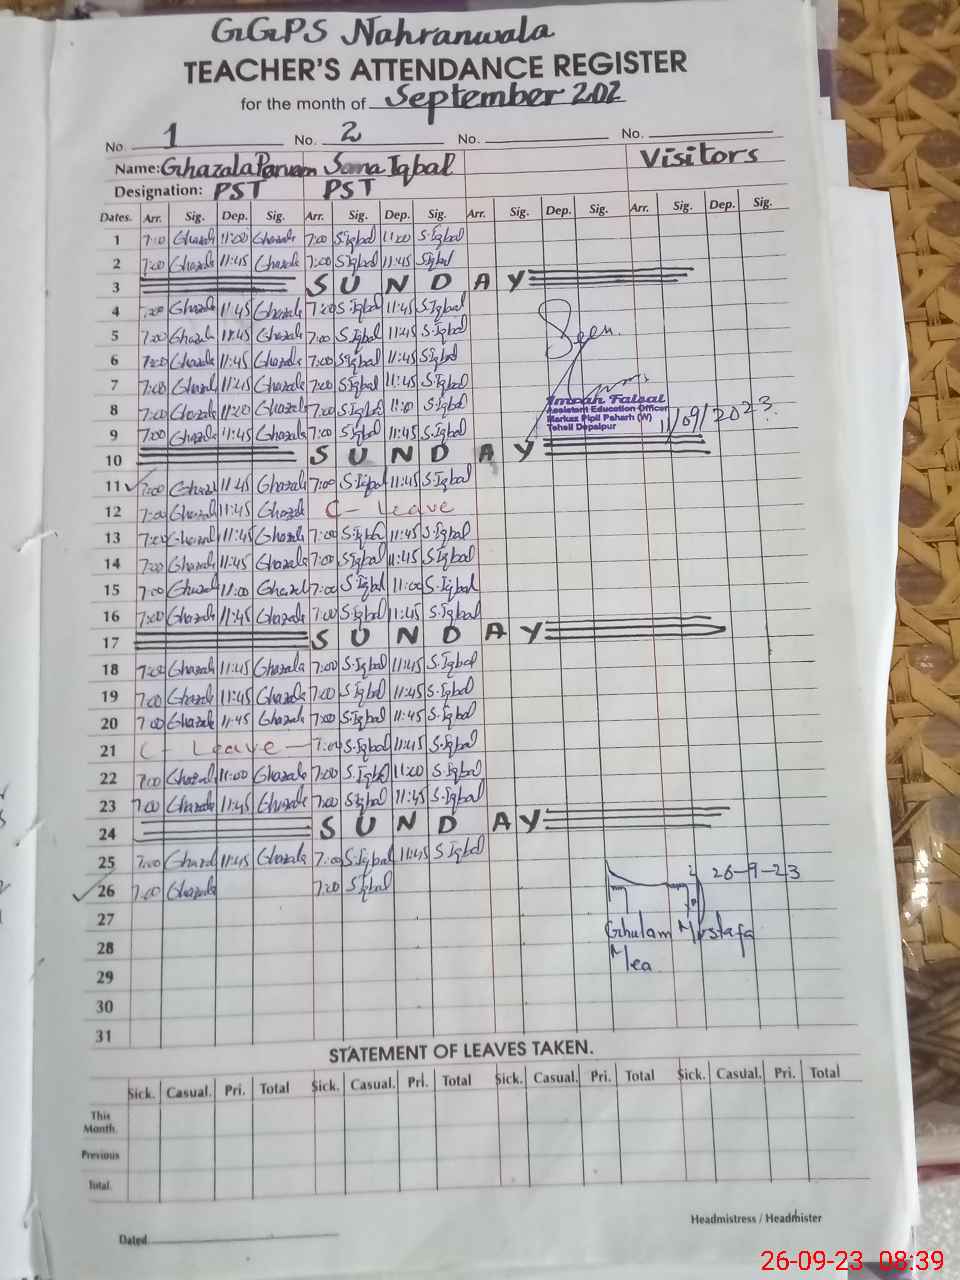 GGPS Nahranwala
TEACHER'S ATTENDANCE REGISTER
for the month of September 202
No. 1 No. 2 No. No.
Name: Ghazala Parveen Sana Iqbal Visitors
Designation: PST PST
Dates. Arr. Sig. Dep. Sig. Arr. Sig. Dep. Sig. Arr. Sig. Dep. Sig. Arr. Sig. Dep. Sig.
1 7:00 Ghazala 11:00 Ghazala 7:00 S.Iqbal 11:00 S.Iqbal
2 7:00 Ghazala 11:45 Ghazala 7:00 S.Iqbal 11:45 S.Iqbal
3 SUNDAY
4 7:00 Ghazala 11:45 Ghazala 7:00 S.Iqbal 11:45 S.Iqbal
5 7:00 Ghazala 11:45 Ghazala 7:00 S.Iqbal 11:45 S.Iqbal
Seen.
6 7:00 Ghazala 11:45 Ghazala 7:00 S.Iqbal 11:45 S.Iqbal
7 7:00 Ghazala 11:45 Ghazala 7:00 S.Iqbal 11:45 S.Iqbal
8 7:00 Ghazala 11:00 Ghazala 7:00 S.Iqbal 11:0 S.Iqbal
Imran Faisal
Assistant Education Officer
Markaz Pipli Paharh (W)
Tehsil Depalpur
11/09/2023
9 7:00 Ghazala 11:45 Ghazala 7:00 S.Iqbal 11:45 S.Iqbal
10 SUNDAY
11 7:00 Ghazala 11:45 Ghazala 7:00 S.Iqbal 11:45 S.Iqbal
12 7:00 Ghazala 11:45 Ghazala C - Leave
13 7:00 Ghazala 11:45 Ghazala 7:00 S.Iqbal 11:45 S.Iqbal
14 7:00 Ghazala 11:45 Ghazala 7:00 S.Iqbal 11:45 S.Iqbal
15 7:00 Ghazala 11:00 Ghazala 7:00 S.Iqbal 11:00 S.Iqbal
16 7:00 Ghazala 11:45 Ghazala 7:00 S.Iqbal 11:45 S.Iqbal
17 SUNDAY
18 7:00 Ghazala 11:45 Ghazala 7:00 S.Iqbal 11:45 S.Iqbal
19 7:00 Ghazala 11:45 Ghazala 7:00 S.Iqbal 11:45 S.Iqbal
20 7:00 Ghazala 11:45 Ghazala 7:00 S.Iqbal 11:45 S.Iqbal
21 C - Leave - 7:00 S.Iqbal 11:45 S.Iqbal
22 7:00 Ghazala 11:00 Ghazala 7:00 S.Iqbal 11:00 S.Iqbal
23 7:00 Ghazala 11:45 Ghazala 7:00 S.Iqbal 11:45 S.Iqbal
24 SUNDAY
25 7:00 Ghazala 11:45 Ghazala 7:00 S.Iqbal 11:45 S.Iqbal
26 7:00 Ghazala 7:00 S.Iqbal
26-9-23
27
Ghulam Mustafa
28
Mea
29
30
31
STATEMENT OF LEAVES TAKEN.
Sick. Casual. Pri. Total Sick. Casual. Pri. Total Sick. Casual. Pri. Total Sick. Casual. Pri. Total
This Month.
Previous
Total
Headmistress / Headmister
Dated
26-09-23 08:39